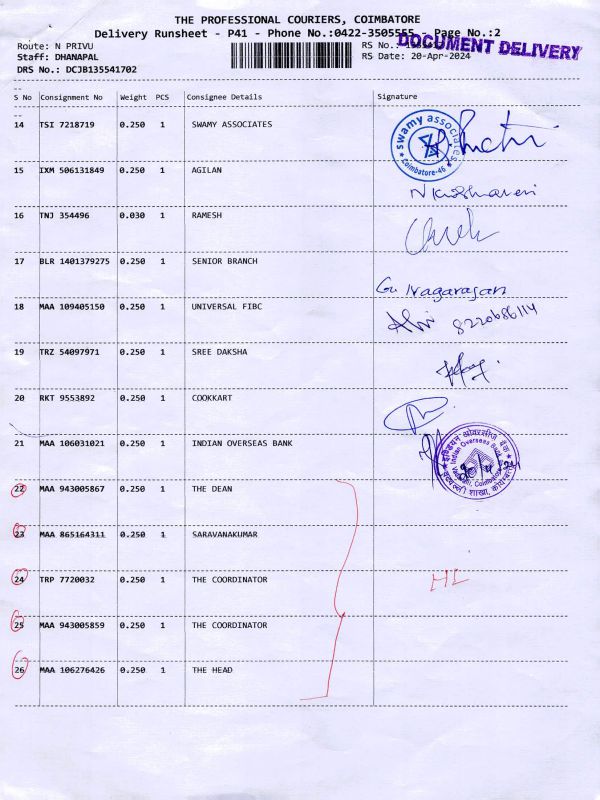 THE PROFESSIONAL COURIERS, COIMBATORE
Delivery Runsheet - P41 - Phone No.:0422-3505555 Page No.:2
DOCUMENT DELIVERY
Route: N PRIVU RS No.:
Staff: DHANAPAL RS Date: 20-Apr-2024
DRS No.: DCJB135541702
--
S No Consignment No Weight PCS Consignee Details Signature
--
14 TSI 7218719 0.250 1 SWAMY ASSOCIATES
swamy associates
Coimbatore-46
15 IXM 506131849 0.250 1 AGILAN
16 TNJ 354496 0.030 1 RAMESH
17 BLR 1401379275 0.250 1 SENIOR BRANCH
Nagarajan
18 MAA 109405150 0.250 1 UNIVERSAL FIBC
8220686114
19 TRZ 54097971 0.250 1 SREE DAKSHA
20 RKT 9553892 0.250 1 COOKKART
21 MAA 106031021 0.250 1 INDIAN OVERSEAS BANK
इण्डियन ओवरसीज़ बैंक
Indian Overseas Bank
22 MAA 943005867 0.250 1 THE DEAN
23 MAA 865164311 0.250 1 SARAVANAKUMAR
24 TRP 7720032 0.250 1 THE COORDINATOR
HL
25 MAA 943005859 0.250 1 THE COORDINATOR
26 MAA 106276426 0.250 1 THE HEAD